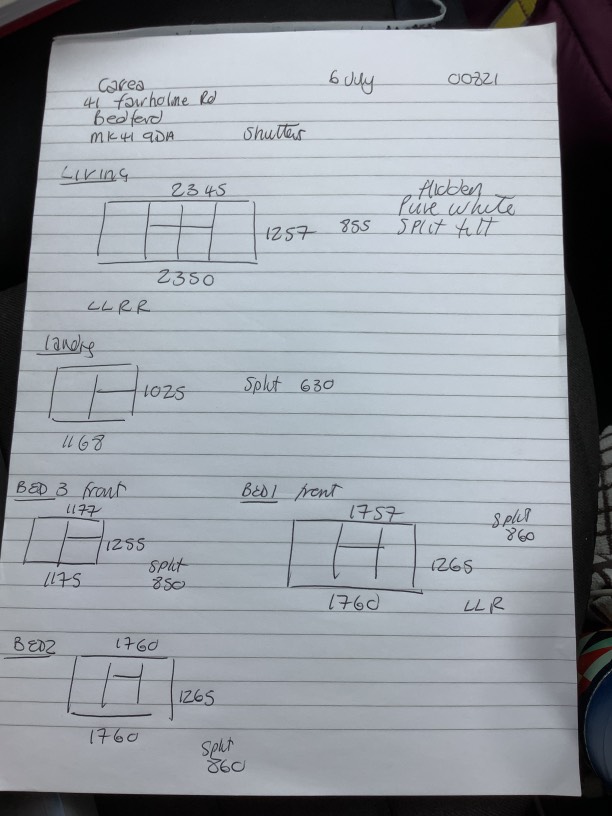 Carea 6 July 00821
41 Fairholme Rd
Bedford
MK41 9DA Shutters
LIVING
2345
Hidden
Pure white
1257 855 Split tilt
2350
LLRR
Landing
1025 Split 630
1168
BED 3 front BED1 front
1177 1757 Split
860
1255 1265
Split
1175 850 1760 LLR
BED2 1760
1265
1760
Split
860